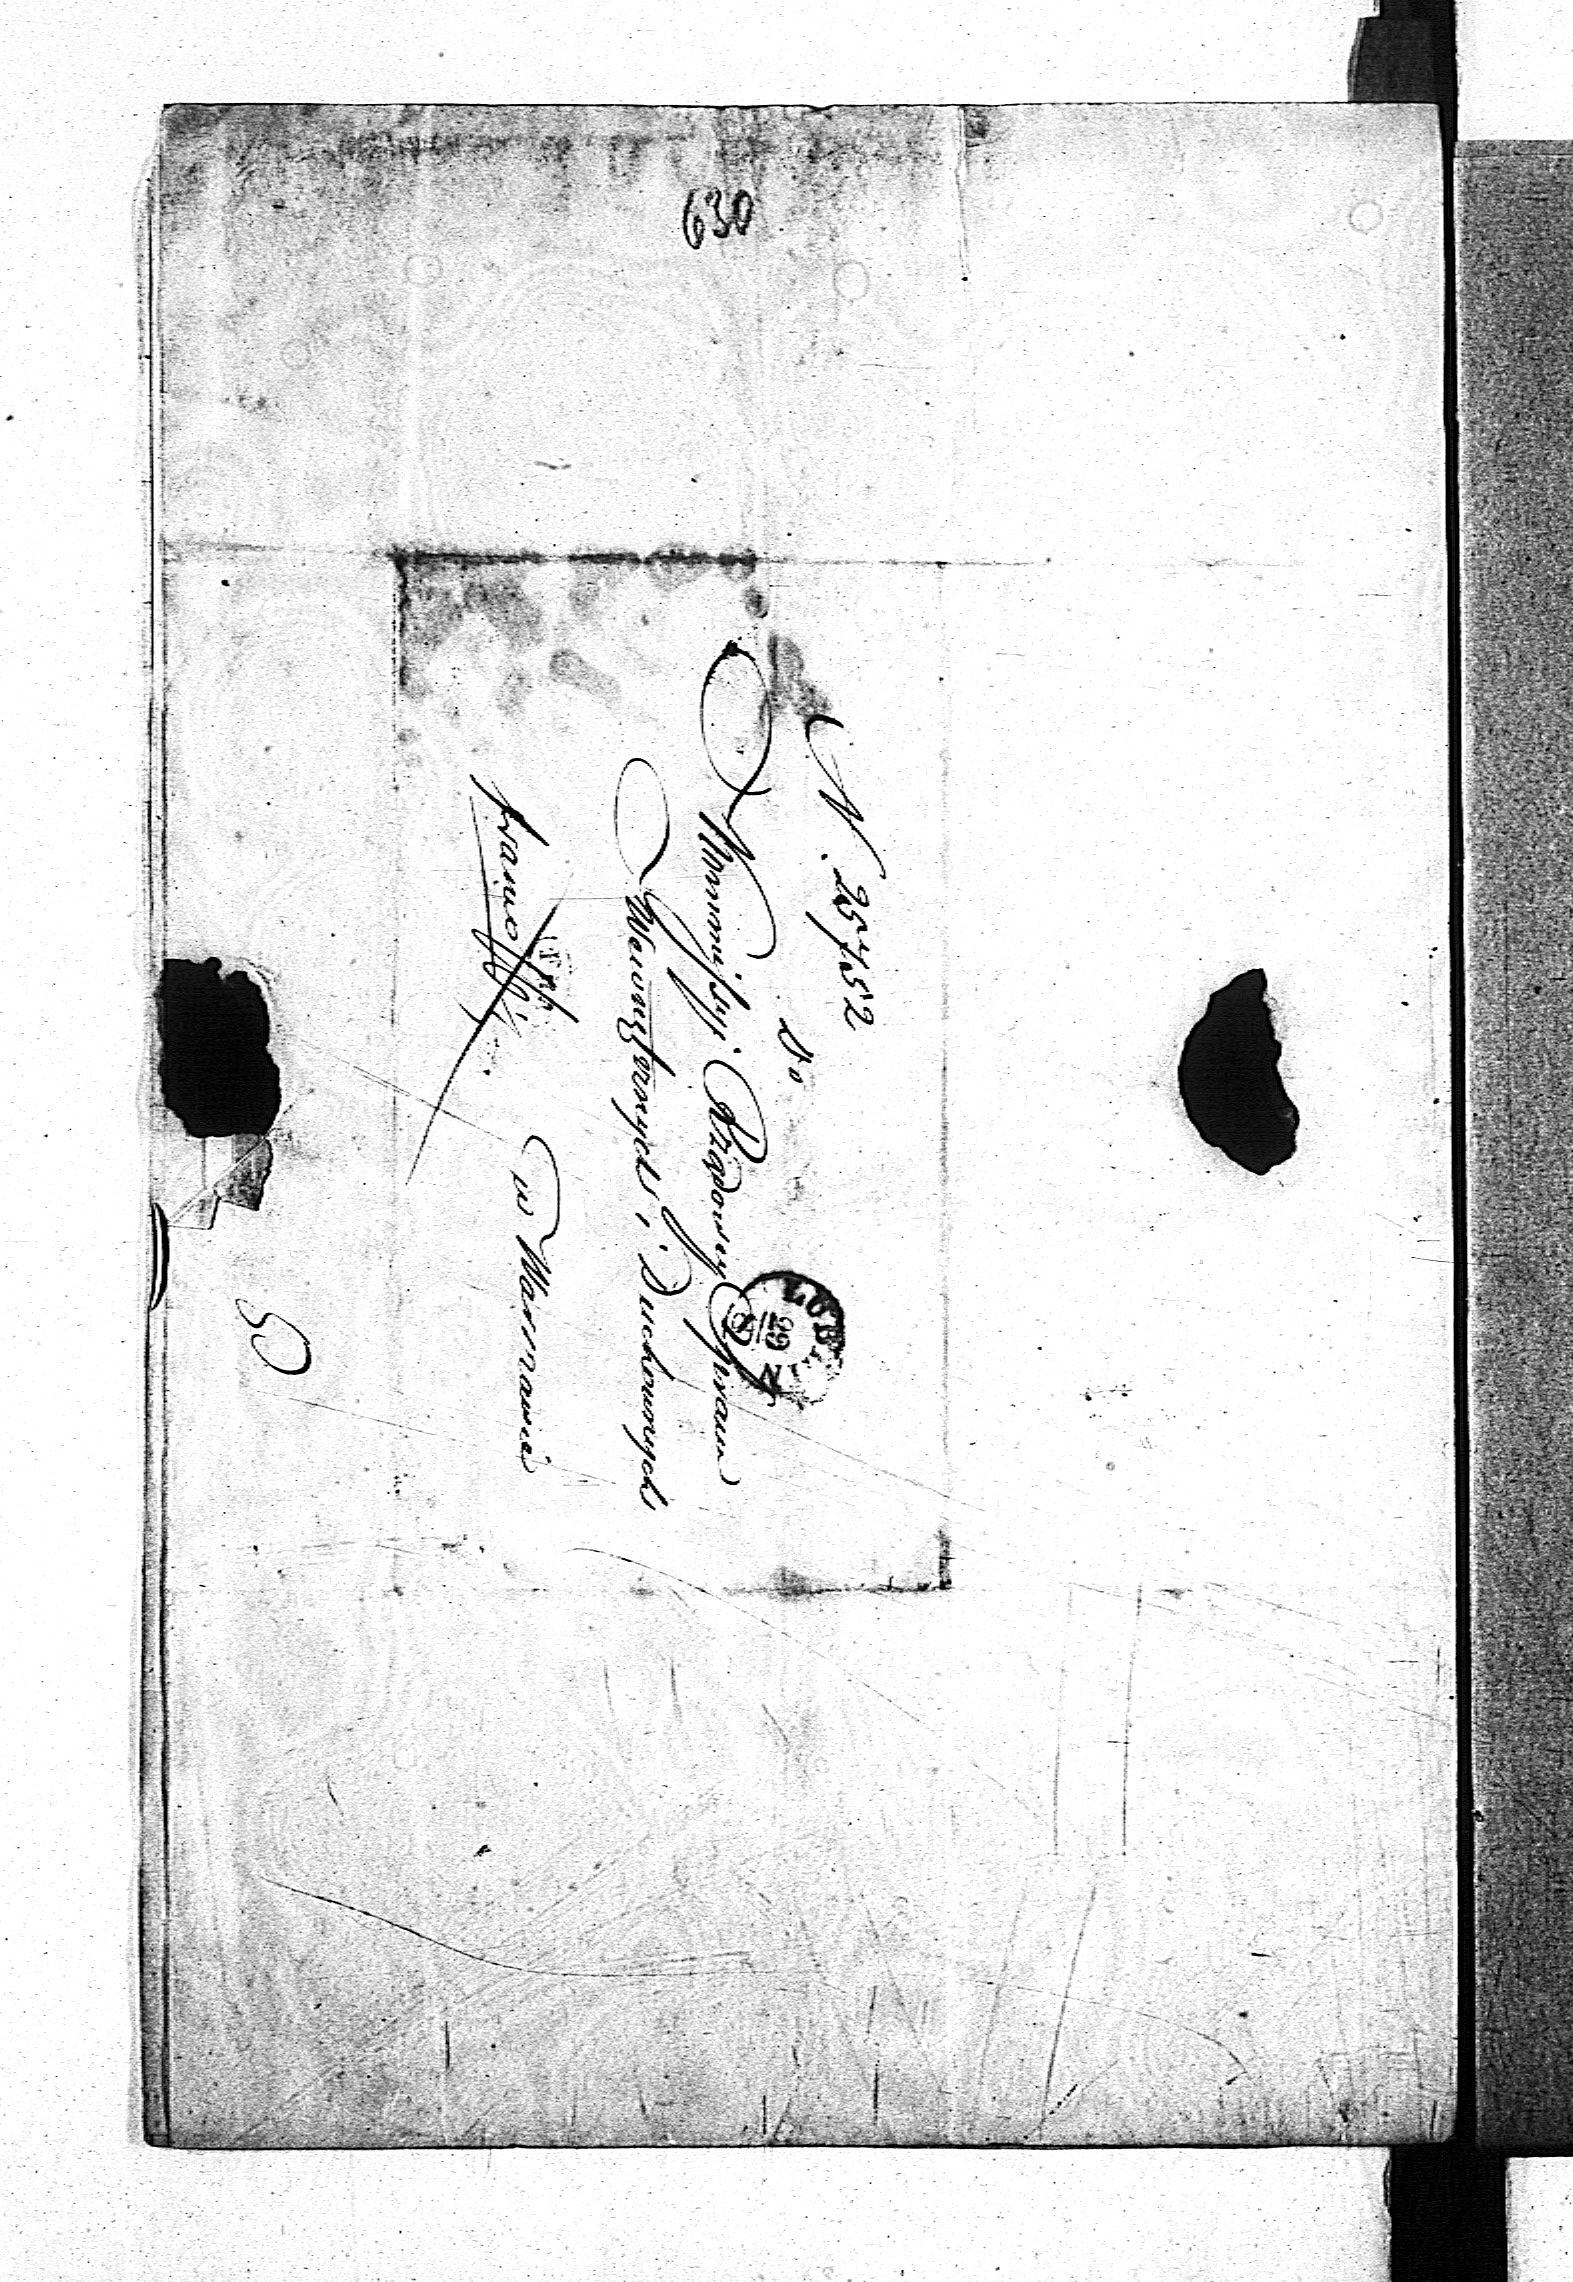 630
N. 25752
do
Kommissyi Rządowey Spraw
Wewnętrznych i Duchownych
w Warszawie
franco
LUBLIN
29